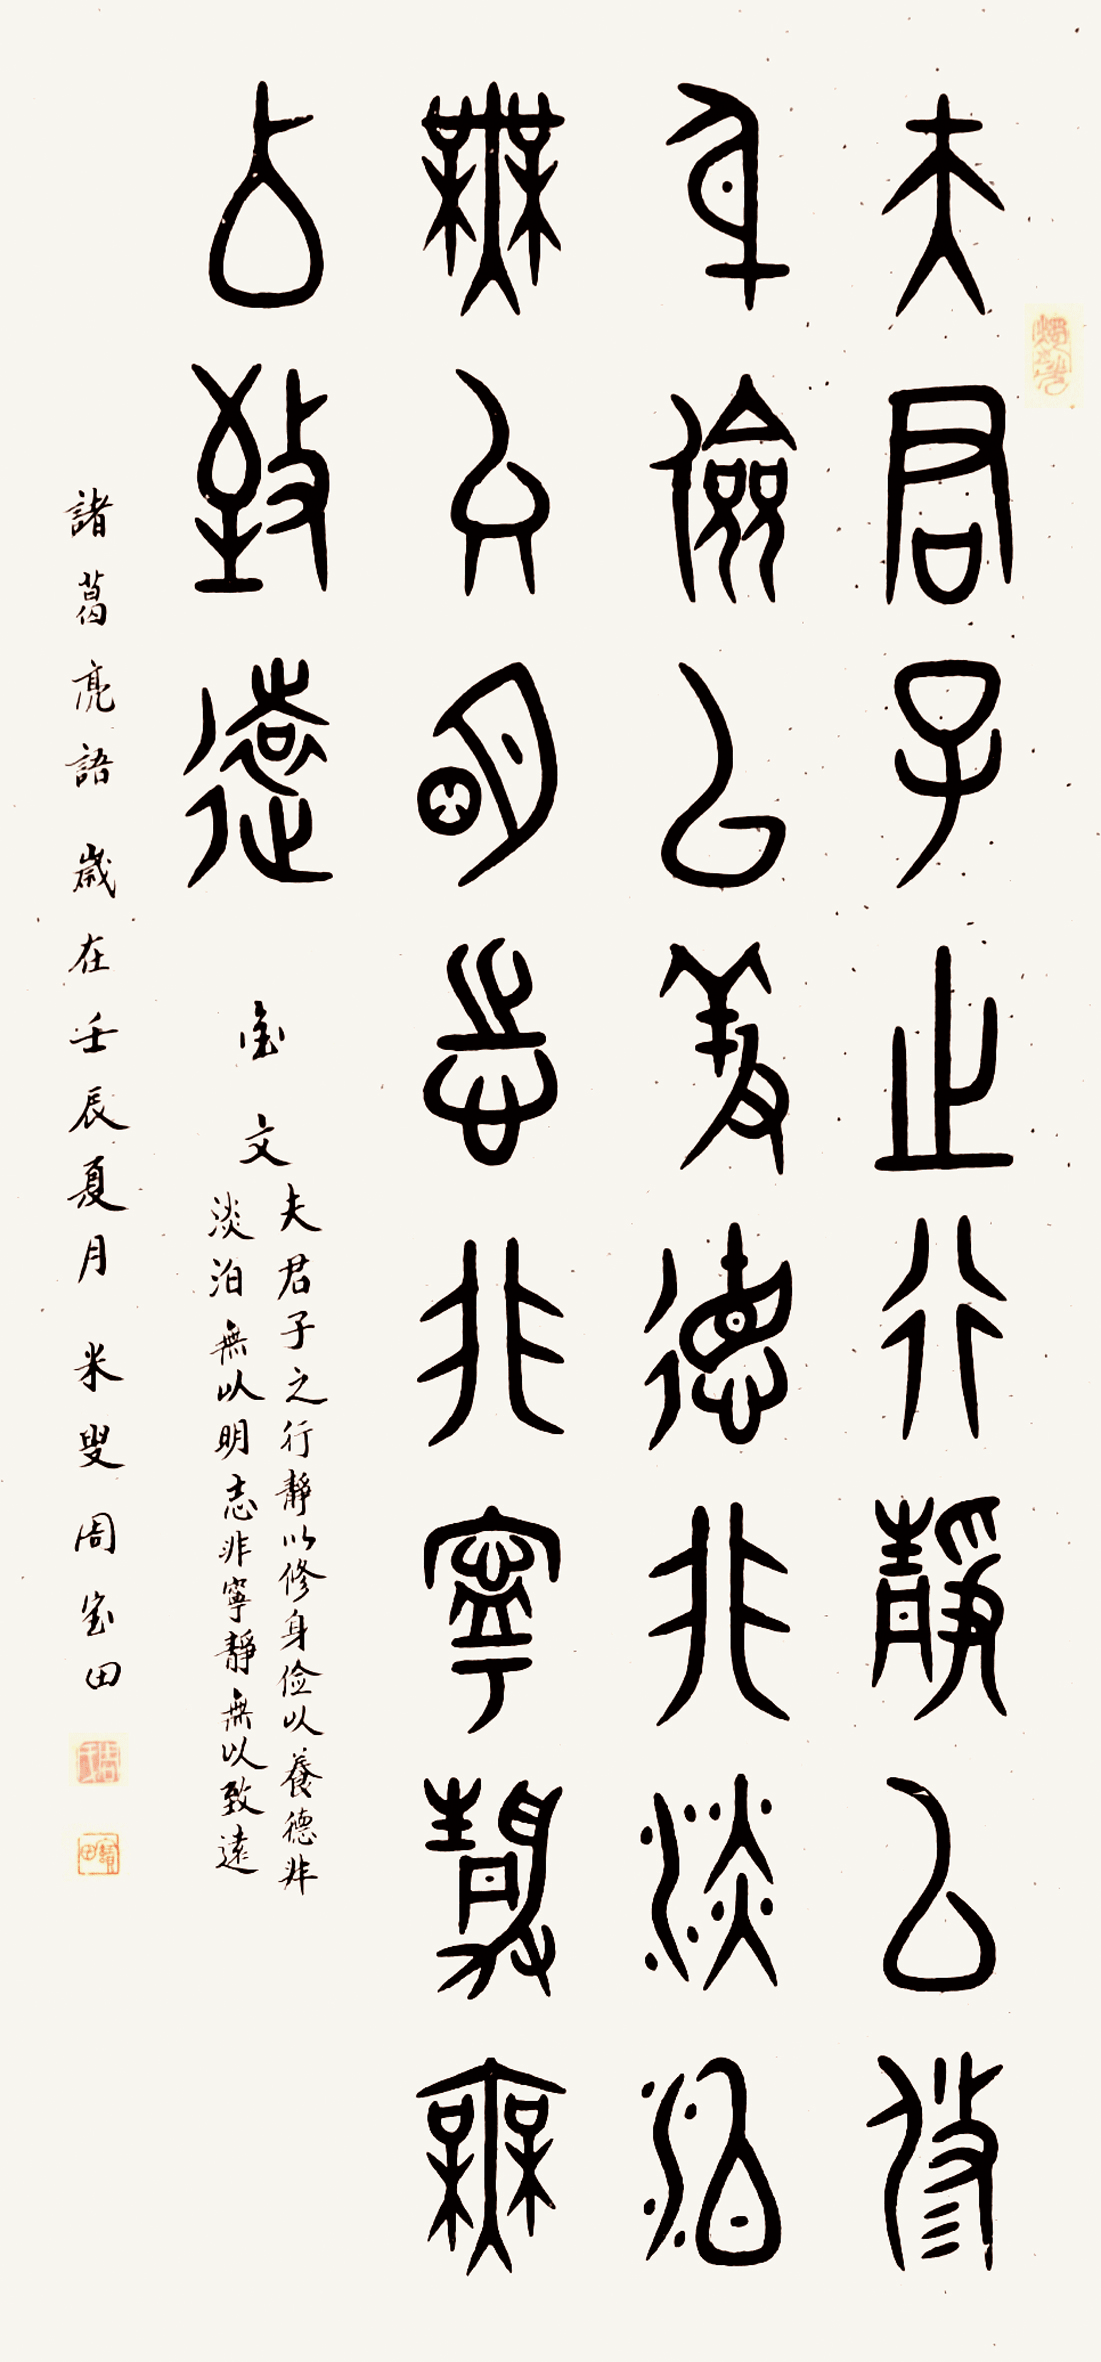 夫君子之行靜以修
身儉以養德非淡泊
無以明志非寧靜無
以致遠
金文
夫君子之行靜以修身俭以養德非
淡泊無以明志非寧靜無以致遠
諸葛亮語 歲在壬辰夏月 米叟周宝田